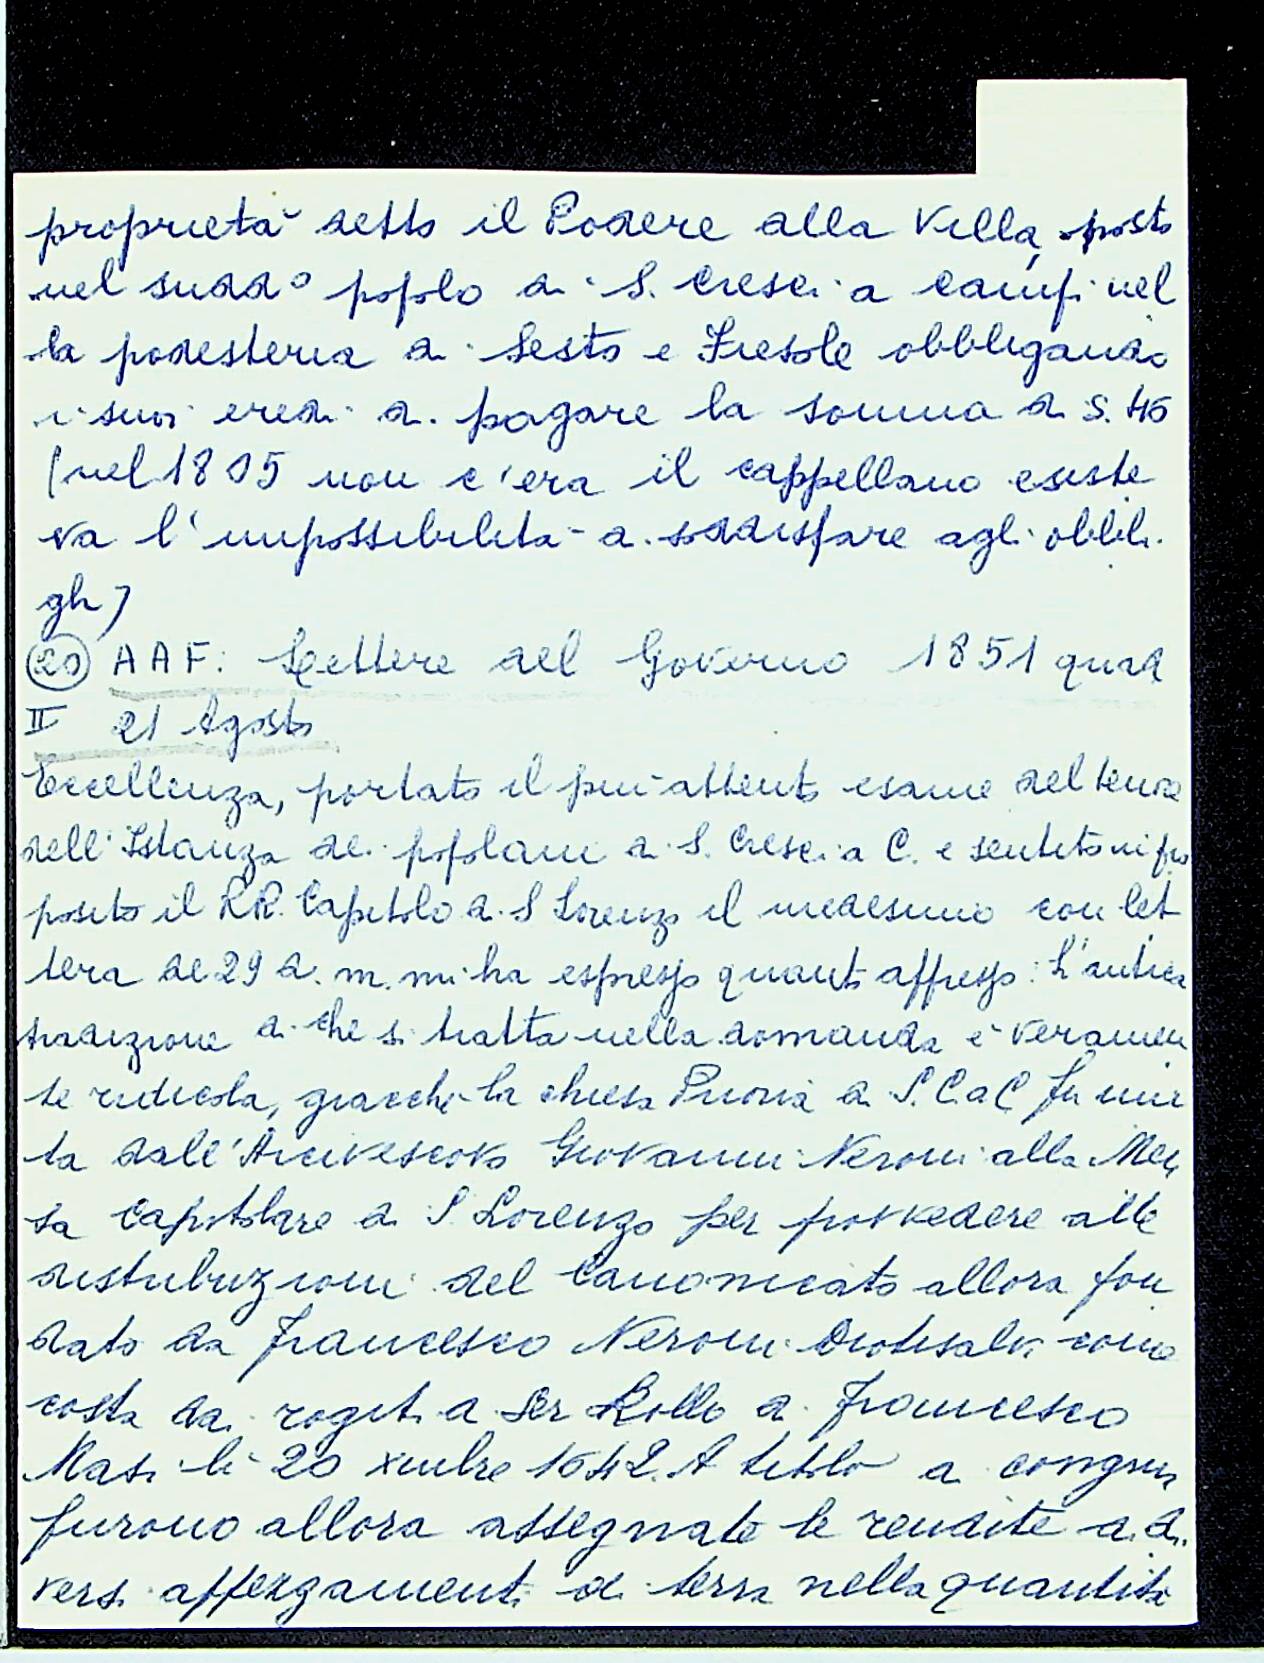 proprietà detto il Podere alla Villa, posto
nel sudd° popolo di S. Cresci a Campi nel
la podesteria di Sesto e Fiesole obbligando
i suoi eredi a pagare la somma di s. 46
(nel 1805 non c'era il cappellano esiste
va l'impossibilità a soddisfare agli obbli
ghi)
(20) AAF: Lettere del Governo 1851 quad
II 21 Agosto
Eccellenza, portato il più attento esame del tenore
dell'Istanza dei popolani di S. Cresci a C. e sentito in pro
posito il RR. Capitolo di S Lorenzo il medesimo con let
tera de 29 d. m. mi ha espresso quant appresso: L'antica
tradizione di che si tratta nella domanda è veramen
te ridicola, giacchè la chiesa Prioria di S. C. a C fu uni
ta dall'Arcivescovo Giovanni Neroni alla Men
sa capitolare di S. Lorenzo per provvedere alle
distribuzioni del Canonicato allora fon
dato da Francesco Neroni Diotisalvi come
costa dai rogiti di Ser Rollo di Francesco
Masi li 20 xmbre 1642. A titolo di congrua
furono allora assegnate le rendite di di
versi appezzamenti di terra nella quantità